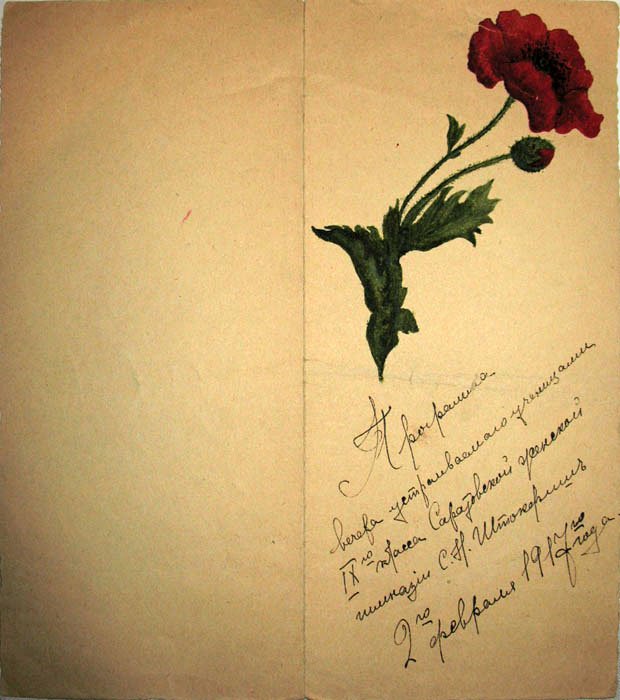 Программа
вечера устраиваемаго ученицами
IXго класса Саратовской женской
гимназіи С.Н. Штокфишъ
2го февраля 1917го года.